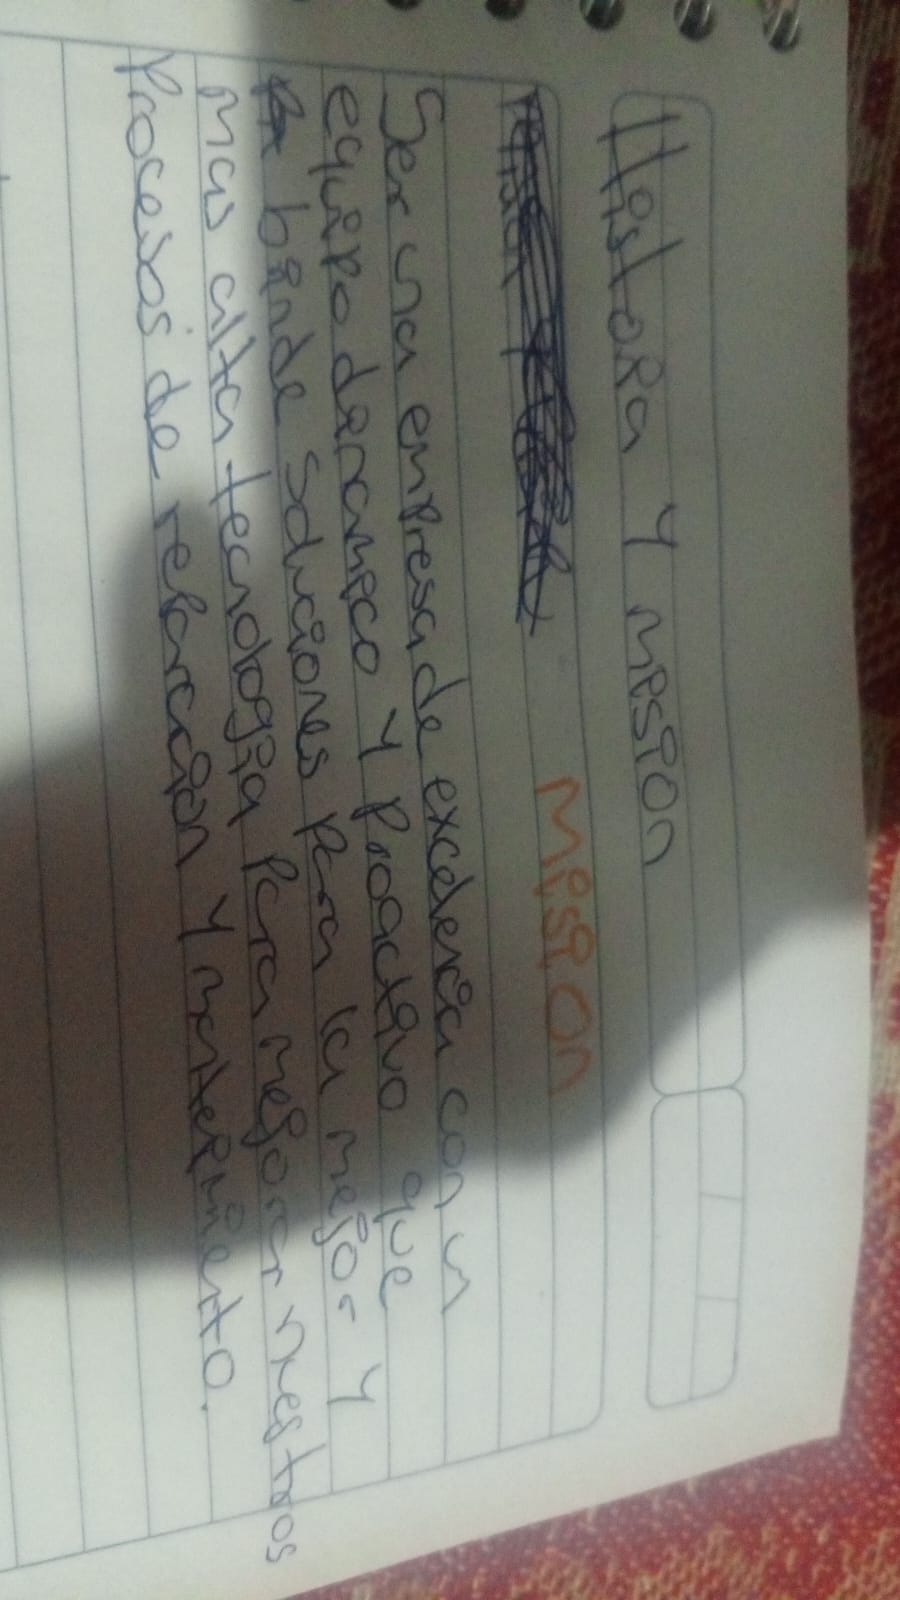 Historia y mision
Mision
Ser una empresa de excelencia con un
equipo dinamico y proactivo que
brinde soluciones para la mejor y
mas alta tecnologia para mejorar nuestros
procesos de relaracion y mantenimiento.